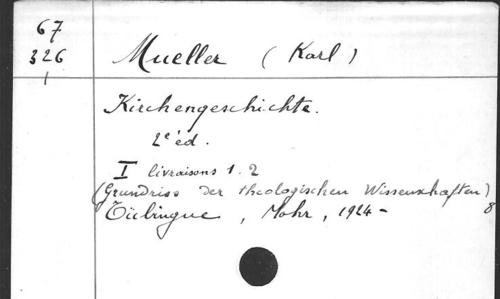 67
326
1
Mueller (Karl)
Kirchengeschichte.
2e éd.
I livraisons 1.2
(Grundriss der theologischen Wissenschaften)
Tübingue, Mohr, 1924- 8